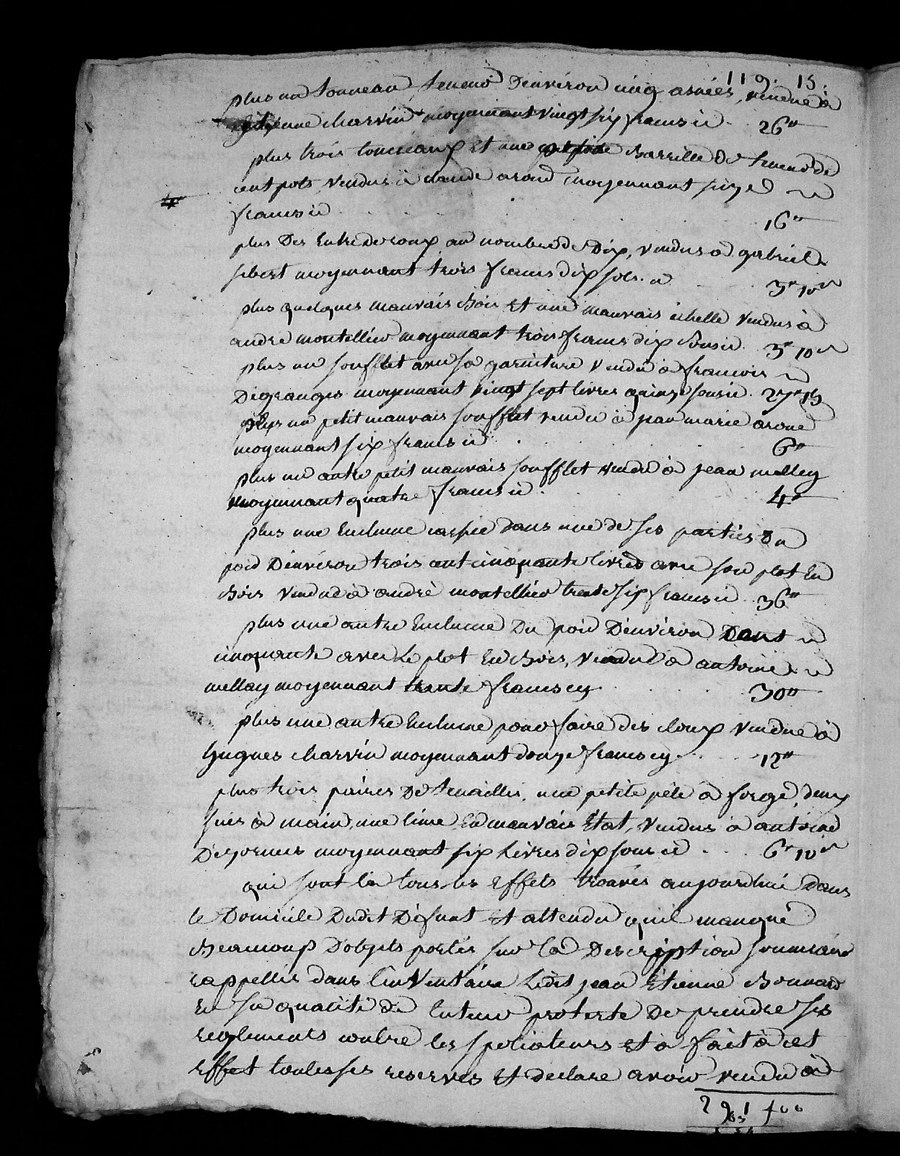 119. 15.
plus un tonneau teneur d'environ cinq asnées, vendue à
etienne charvin moyennant vingt six francs ci . 26"
plus trois tonneaux et une petite Barille de teneur de
cent pots vendus à claude arond moyennant seize
francs ci 16"
plus des Entrederoux au nombre de Dix, vendus à gabriel
sibert moyennant trois francs dix sols. ci 3" 10s
plus quelques mauvais Bois et une mauvais echelle vendus à
andré montellier moyennant trois francs dix sous ci. 3" 10s
plus un soufflet avec sa garniture vendu à francois
Degranges moyennant vingt sept livres quinze sous ci. 27" 15
plus un petit mauvais soufflet vendu à jean marie arond
moyennant six francs ci 6"
plus un autre petit mauvais soufflet vendu à jean mellay
moyennant quatre francs ci . 4"
plus une Enclume cassée dans une de ses parties du
poid D'environ trois cent cinquante livres avec son plot En
Bois vendue à andré montellier trente six francs ci . 36"
plus une autre Enclume Du poid D'environ Deux cent
cinquante avec Le plot En Bois, vendue à antoine
mellay moyennant trente francs cy . . . 30"
plus une autre Enclume pour faire des cloux vendue à
hugues charvin moyennant douze francs cy . . . 12"
plus trois paires De tenailles, une petite pele à forge, deux
scies à main, une lime En mauvais Etat, vendus à antoine
Degornes moyennant six Livres dix sous ci . . 6" 10s
qui sont la tous les Effets trouvés aujourdhui dans
le Domicile Dudit Défunt Et attendu quil manque
Beaucoup D'objets portés sur la Description sommaire
rappellée dans L'inventaire Ledit jean Etienne Bonnard
En sa qualité de tuteur proteste De prendre ses
reglements contre les spoliateurs et a fait à cet
effet toutes ses reserves Et declare avoir vendu à